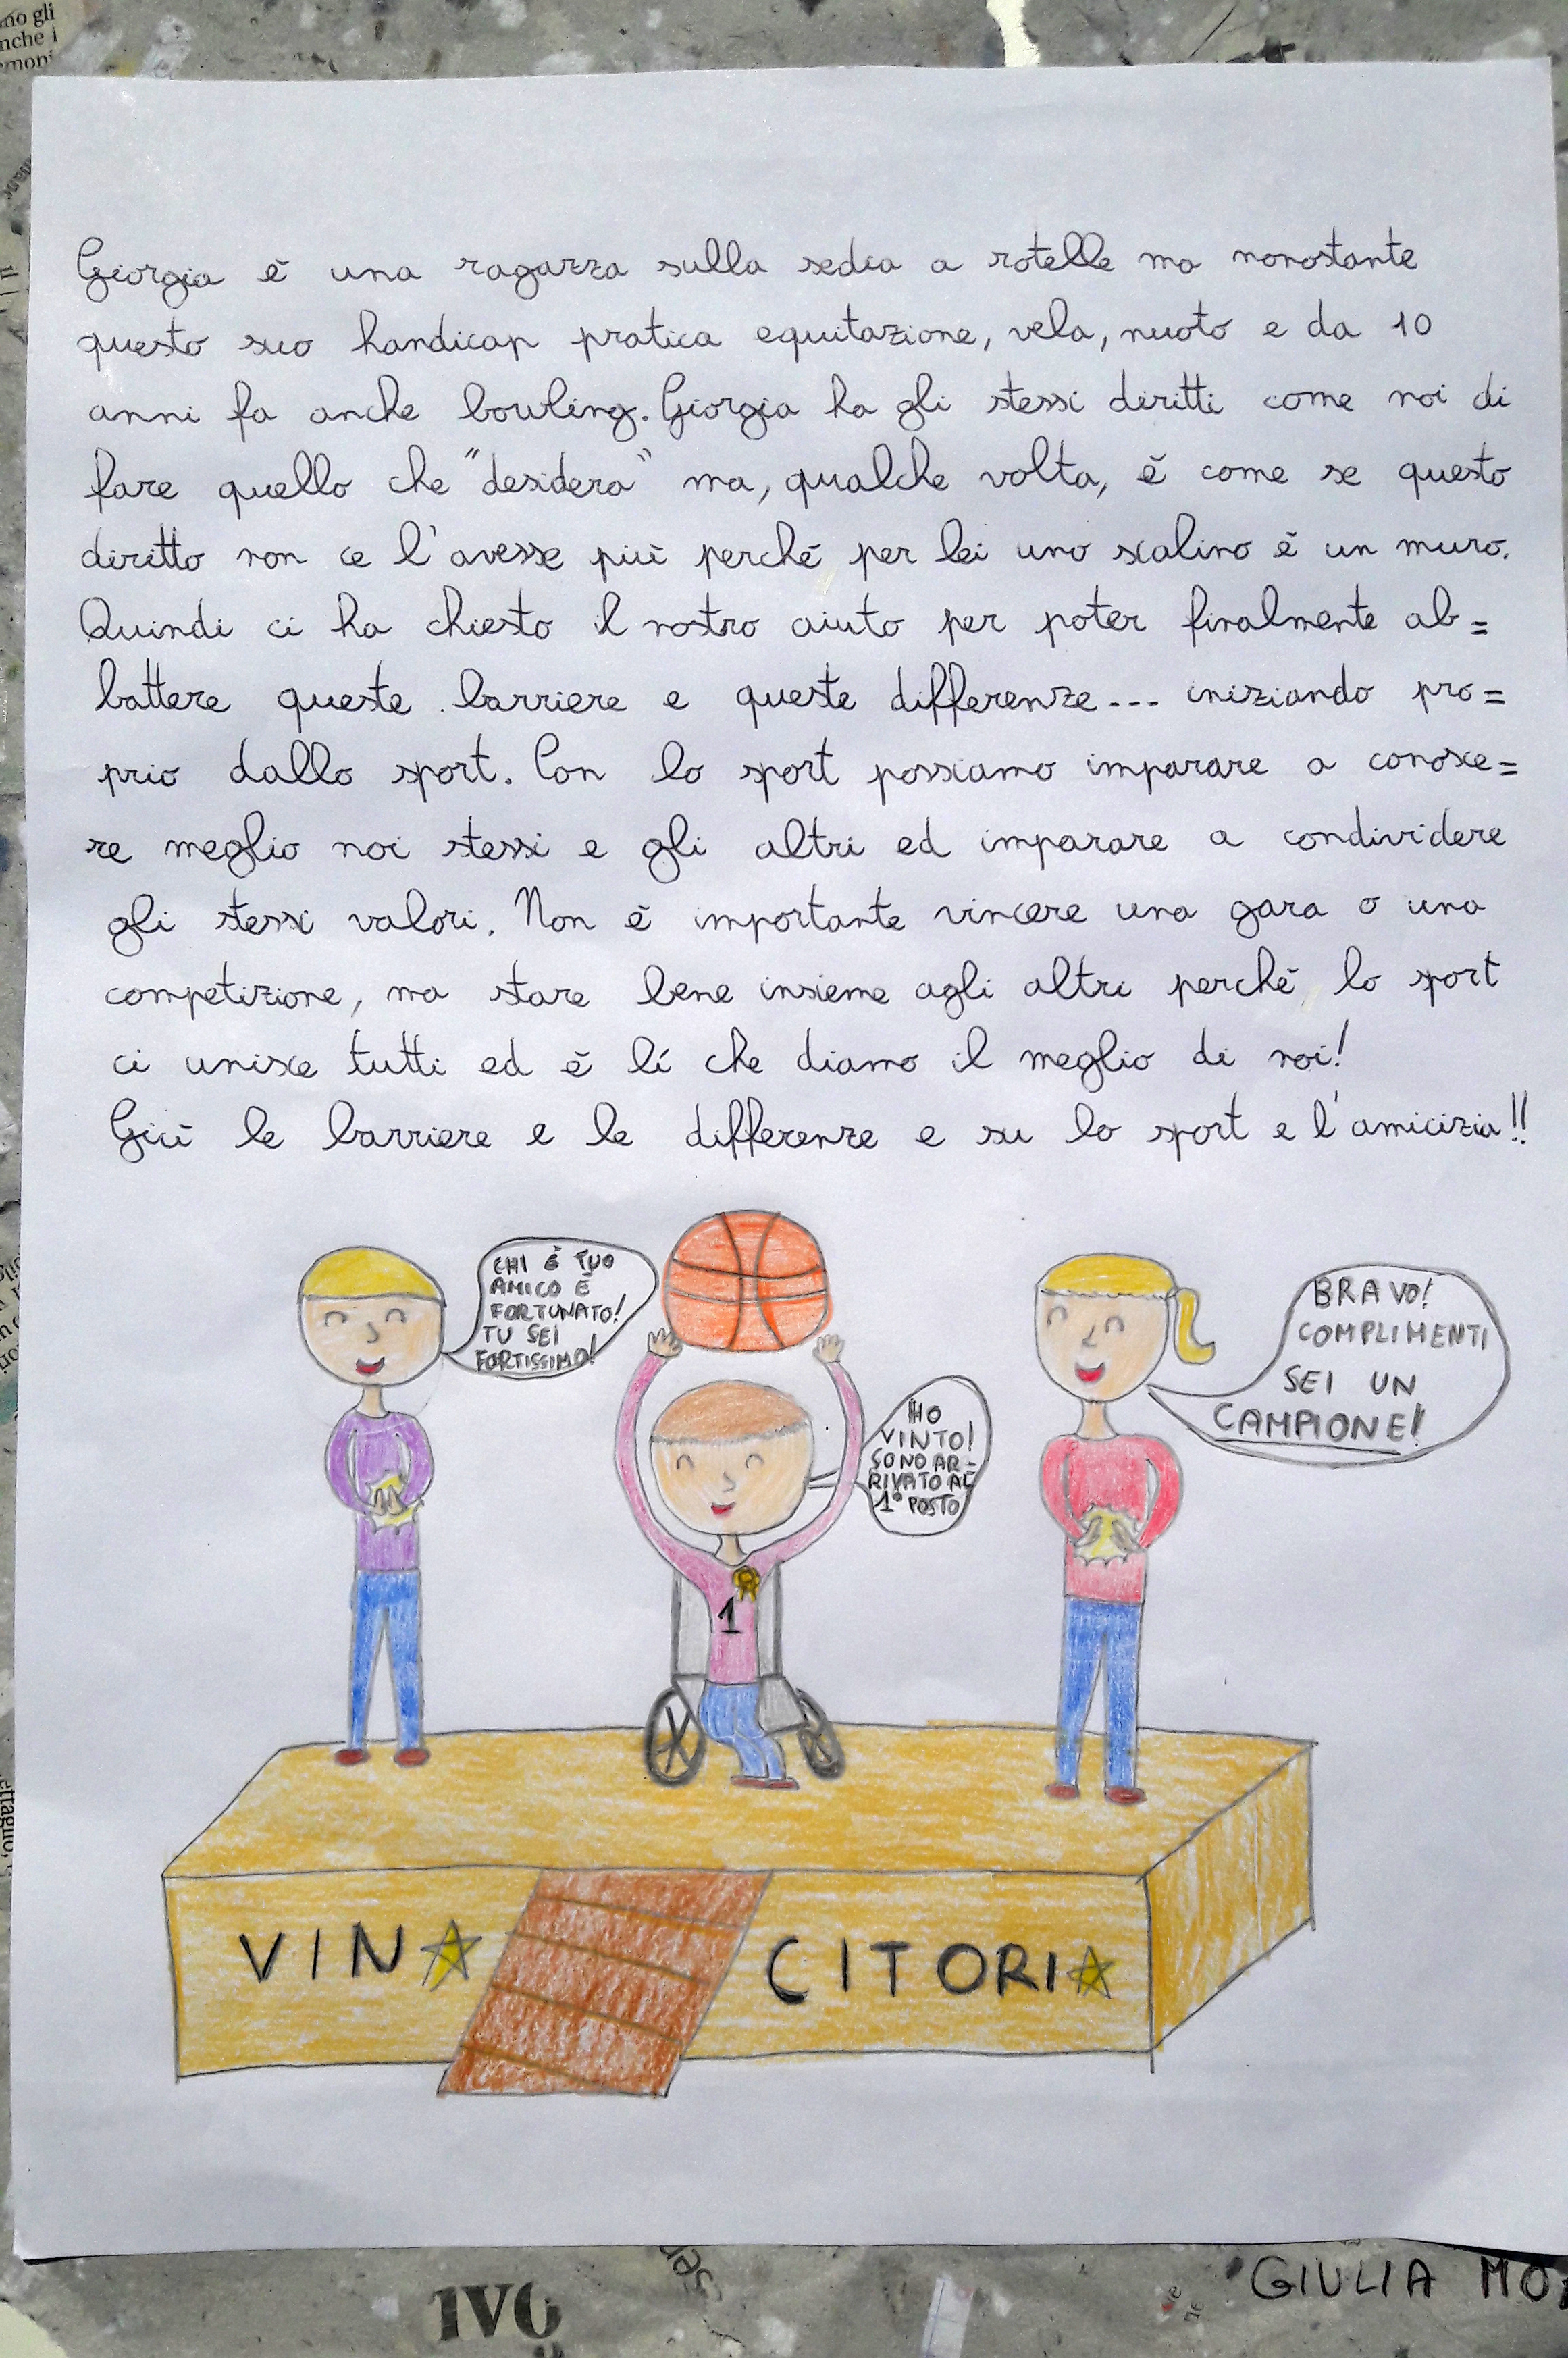 Giorgia è una ragazza sulla sedia a rotelle ma nonostante
questo suo handicap pratica equitazione, vela, nuoto e da 10
anni fa anche bowling. Giorgia ha gli stessi diritti come noi di
fare quello che "desidera" ma, qualche volta, è come se questo
diritto non ce l'avesse più perché per lei uno scalino è un muro.
Quindi ci ha chiesto il nostro aiuto per poter finalmente ab=
battere queste barriere e queste differenze... iniziando pro=
prio dallo sport. Con lo sport possiamo imparare a conosce=
re meglio noi stessi e gli altri ed imparare a condividere
gli stessi valori. Non è importante vincere una gara o una
competizione, ma stare bene insieme agli altri perché lo sport
ci unisce tutti ed è lí che diamo il meglio di noi!
Giù le barriere e le differenze e su lo sport e l'amicizia!!
CHI È TUO
AMICO È
FORTUNATO!
TU SEI
FORTISSIMO!
HO
VINTO!
SONO AR=
RIVATO AL
1° POSTO
BRAVO!
COMPLIMENTI
SEI UN
CAMPIONE!
1
VIN CITORI
GIULIA MO
IVO
ser
no gli
nche i
moni